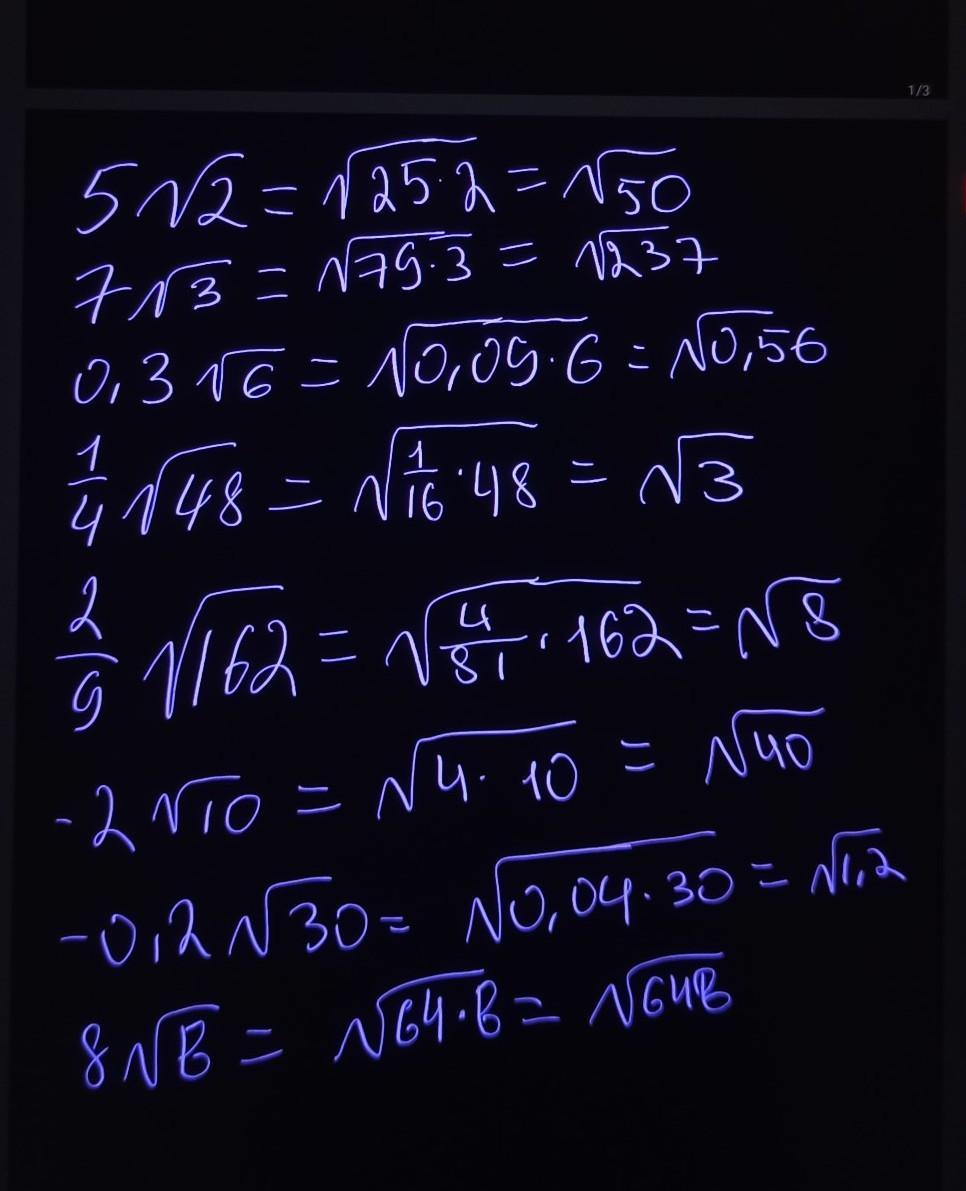 1/3
5√2 = √25·2 = √50
7√3 = √79·3 = √237
0,3√6 = √0,09·6 = √0,56
1/4 √48 = √1/16·48 = √3
2/9 √162 = √4/81·162 = √8
-2√10 = √4·10 = √40
-0,2√30 = √0,04·30 = √1,2
8√B = √64·B = √64B